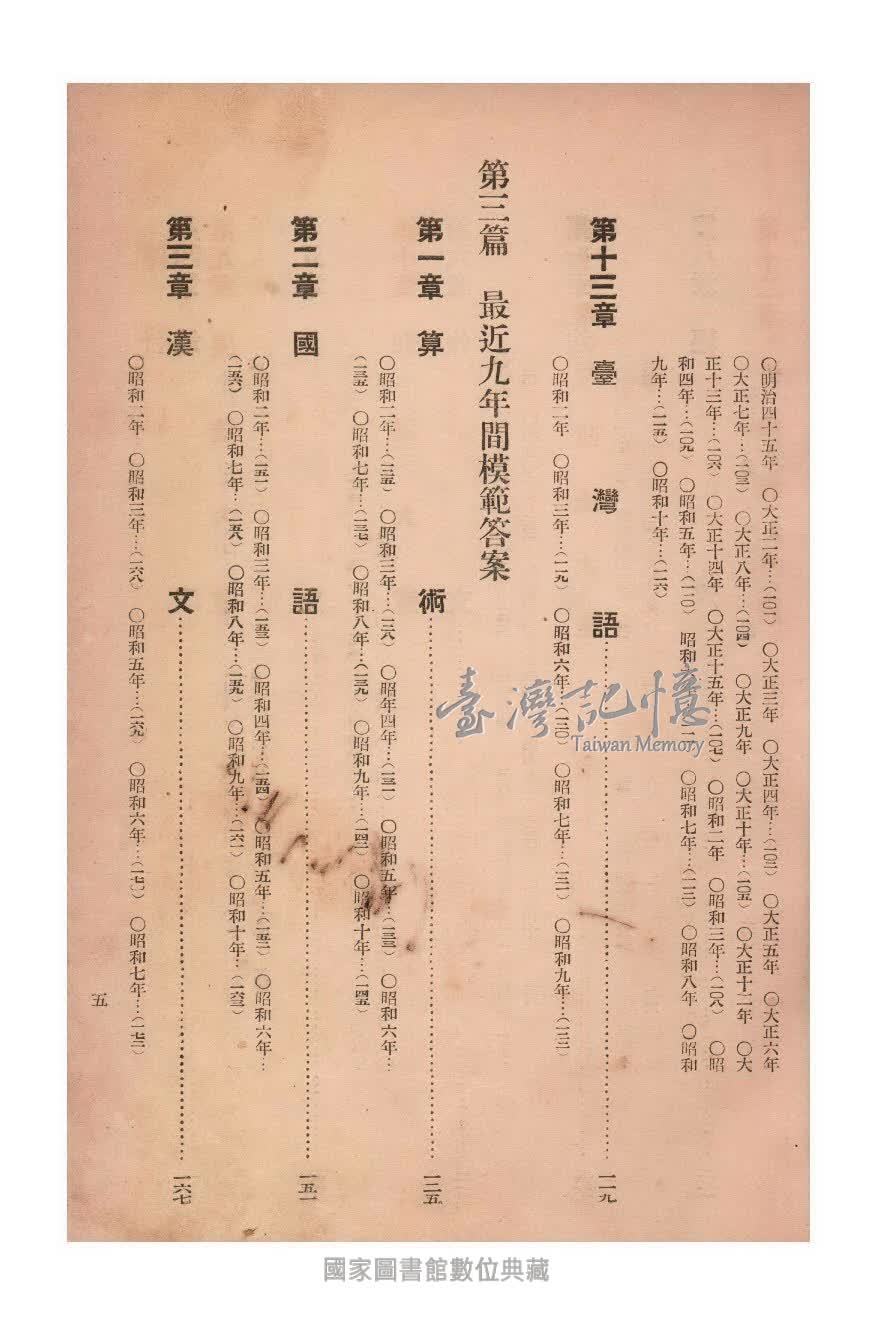 〇明治四十五年 〇大正二年…(一〇一) 〇大正三年 〇大正四年…(一〇二) 〇大正五年 〇大正六年
〇大正七年…(一〇三) 〇大正八年…(一〇四) 〇大正九年 〇大正十年…(一〇五) 〇大正十二年 〇大
正十三年…(一〇六) 〇大正十四年 〇大正十五年…(一〇七) 〇昭和二年 〇昭和三年…(一〇八) 〇昭
和四年…(一〇九) 〇昭和五年…(一一〇) 昭和 〇昭和七年…(一一三) 〇昭和八年 〇昭和
九年…(一一五) 〇昭和十年…(一一六)
第十三章 臺灣語……一一九
〇昭和二年 〇昭和三年…(一一九) 〇昭和六年…(一二〇) 〇昭和七年…(一二一) 〇昭和九年…(一二二)
第三篇 最近九年間模範答案
第一章 算術……一二五
〇昭和二年…(一二五) 〇昭和三年…(一二八) 〇昭年四年…(一三一) 〇昭和五年…(一三三) 〇昭和六年…
(一三五) 〇昭和七年…(一三七) 〇昭和八年…(一三九) 〇昭和九年…(一四二) 〇昭和十年…(一四五)
第二章 國語……一五一
〇昭和二年…(一五一) 〇昭和三年…(一五三) 〇昭和四年…(一五四) 〇昭和五年… 〇昭和六年…
(一五六) 〇昭和七年…(一五八) 〇昭和八年…(一五九) 〇昭和九年…(一六一) 〇昭和十年…(一六三)
第三章 漢文……一六七
〇昭和二年 〇昭和三年…(一六八) 〇昭和五年…(一六九) 〇昭和六年…(一七〇) 〇昭和七年…(一七二)
五
臺灣記憶
Taiwan Memory
國家圖書館數位典藏